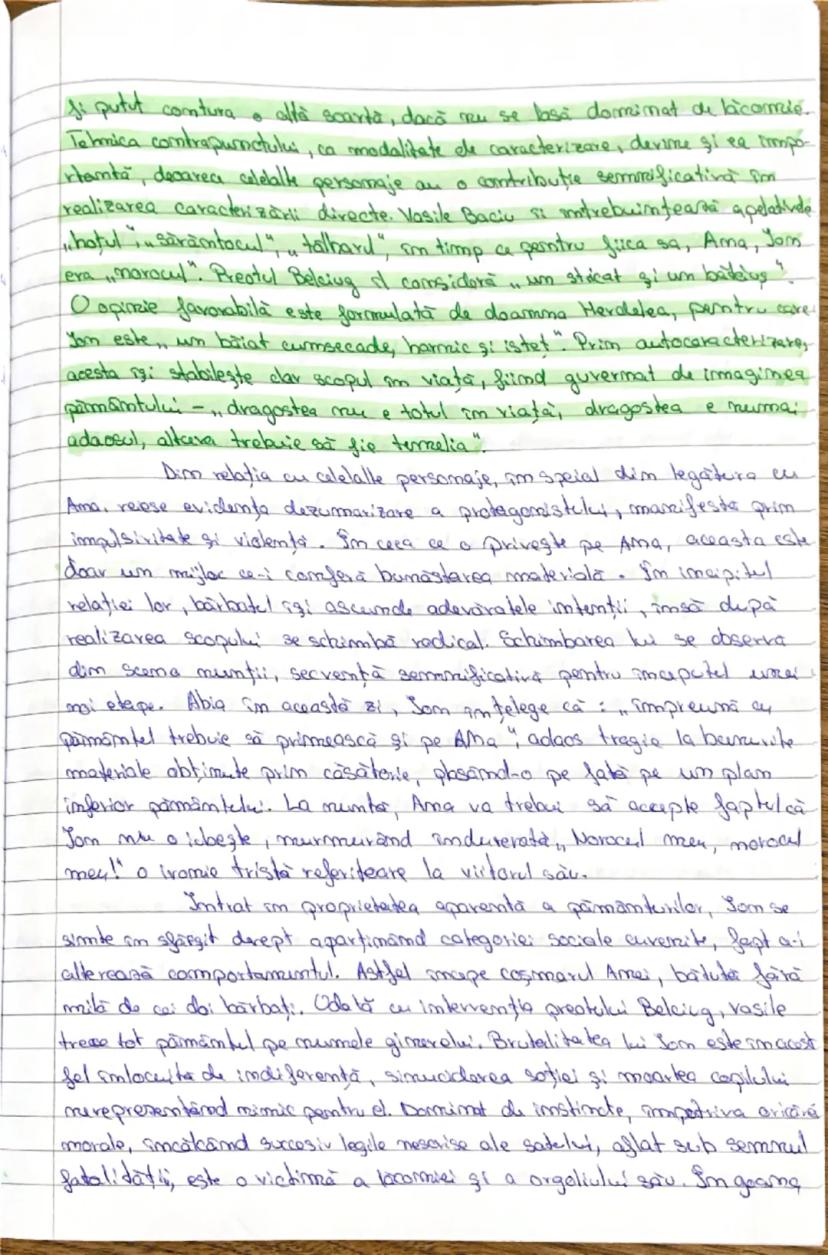 fi putut contura o altă soartă, dacă nu se lasă dominat de lăcomie.
Tehnica contrapunctului, ca modalitate de caracterizare, devine și ea impo-
rtantă, deoarece celelalte personaje au o contribuție semnificativă în
realizarea caracterizării directe. Vasile Baciu îi întrebuințează apelativele
„hoțul", „sărăntocul", „tâlharul", în timp ce pentru fiica sa, Ana, Ion
era „norocul". Preotul Belciug îl consideră „un stricat și un bătăuș".
O opinie favorabilă este formulată de doamna Herdelea, pentru care
Ion este „un băiat cumsecade, harnic și isteț". Prin autocaracterizare,
acesta își stabilește clar scopul în viață, fiind guvernat de imaginea
pământului - „dragostea nu e totul în viață, dragostea e numai
adaosul, altceva trebuie să fie temelia".
Din relația cu celelalte personaje, în special din legătura cu
Ana, reiese evidența dezumanizare a protagonistului, manifestă prin
impulsivitate și violență. În ceea ce o privește pe Ana, aceasta este
doar un mijloc ce-i conferă bunăstarea materială. În incipitul
relației lor, bărbatul își ascunde adevăratele intenții, însă după
realizarea scopului se schimbă radical. Schimbarea lui se observa
din scena nunții, secvență semnificativă pentru începutul unei
noi etape. Abia în această zi, Ion înțelege că: „împreună cu
pământul trebuie să primească și pe Ana", adaos tragic la bunurile
materiale obținute prin căsătorie, plasând-o pe fată pe un plan
inferior pământului. La nuntă, Ana va trebui să accepte faptul că
Ion nu o iubește, murmurând îndurerată „Norocul meu, norocul
meu!" o ironie tristă referitoare la viitorul său.
Intrat în proprietatea aparentă a pământurilor, Ion se
simte în sfârșit drept aparținând categoriei sociale cuvenite, fapt ce-i
alterează comportamentul. Astfel începe coșmarul Anei, bătută fără
milă de cei doi bărbați. Odată cu intervenția preotului Belciug, Vasile
trece tot pământul pe numele ginerelui. Brutalitatea lui Ion este în acest
fel înlocuită de indiferență, sinuciderea soției și moartea copilului
nereprezentând nimic pentru el. Dominat de instincte, împotriva oricărei
morale, încălcând succesiv legile nescrise ale satului, aflat sub semnul
fatalității, este o victimă a lăcomiei și a orgoliului său. În goana